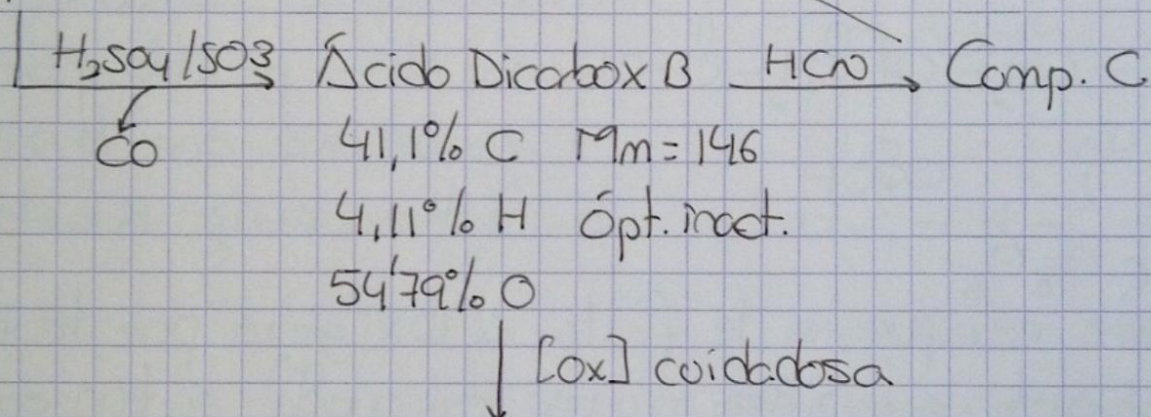 H₂SO₄/SO3 Ácido Dicarbox B HCN Comp. C
CO 41,1% C Mm = 146
4,11% H Ópt. inact.
54'79% O
[ox] cuidadosa